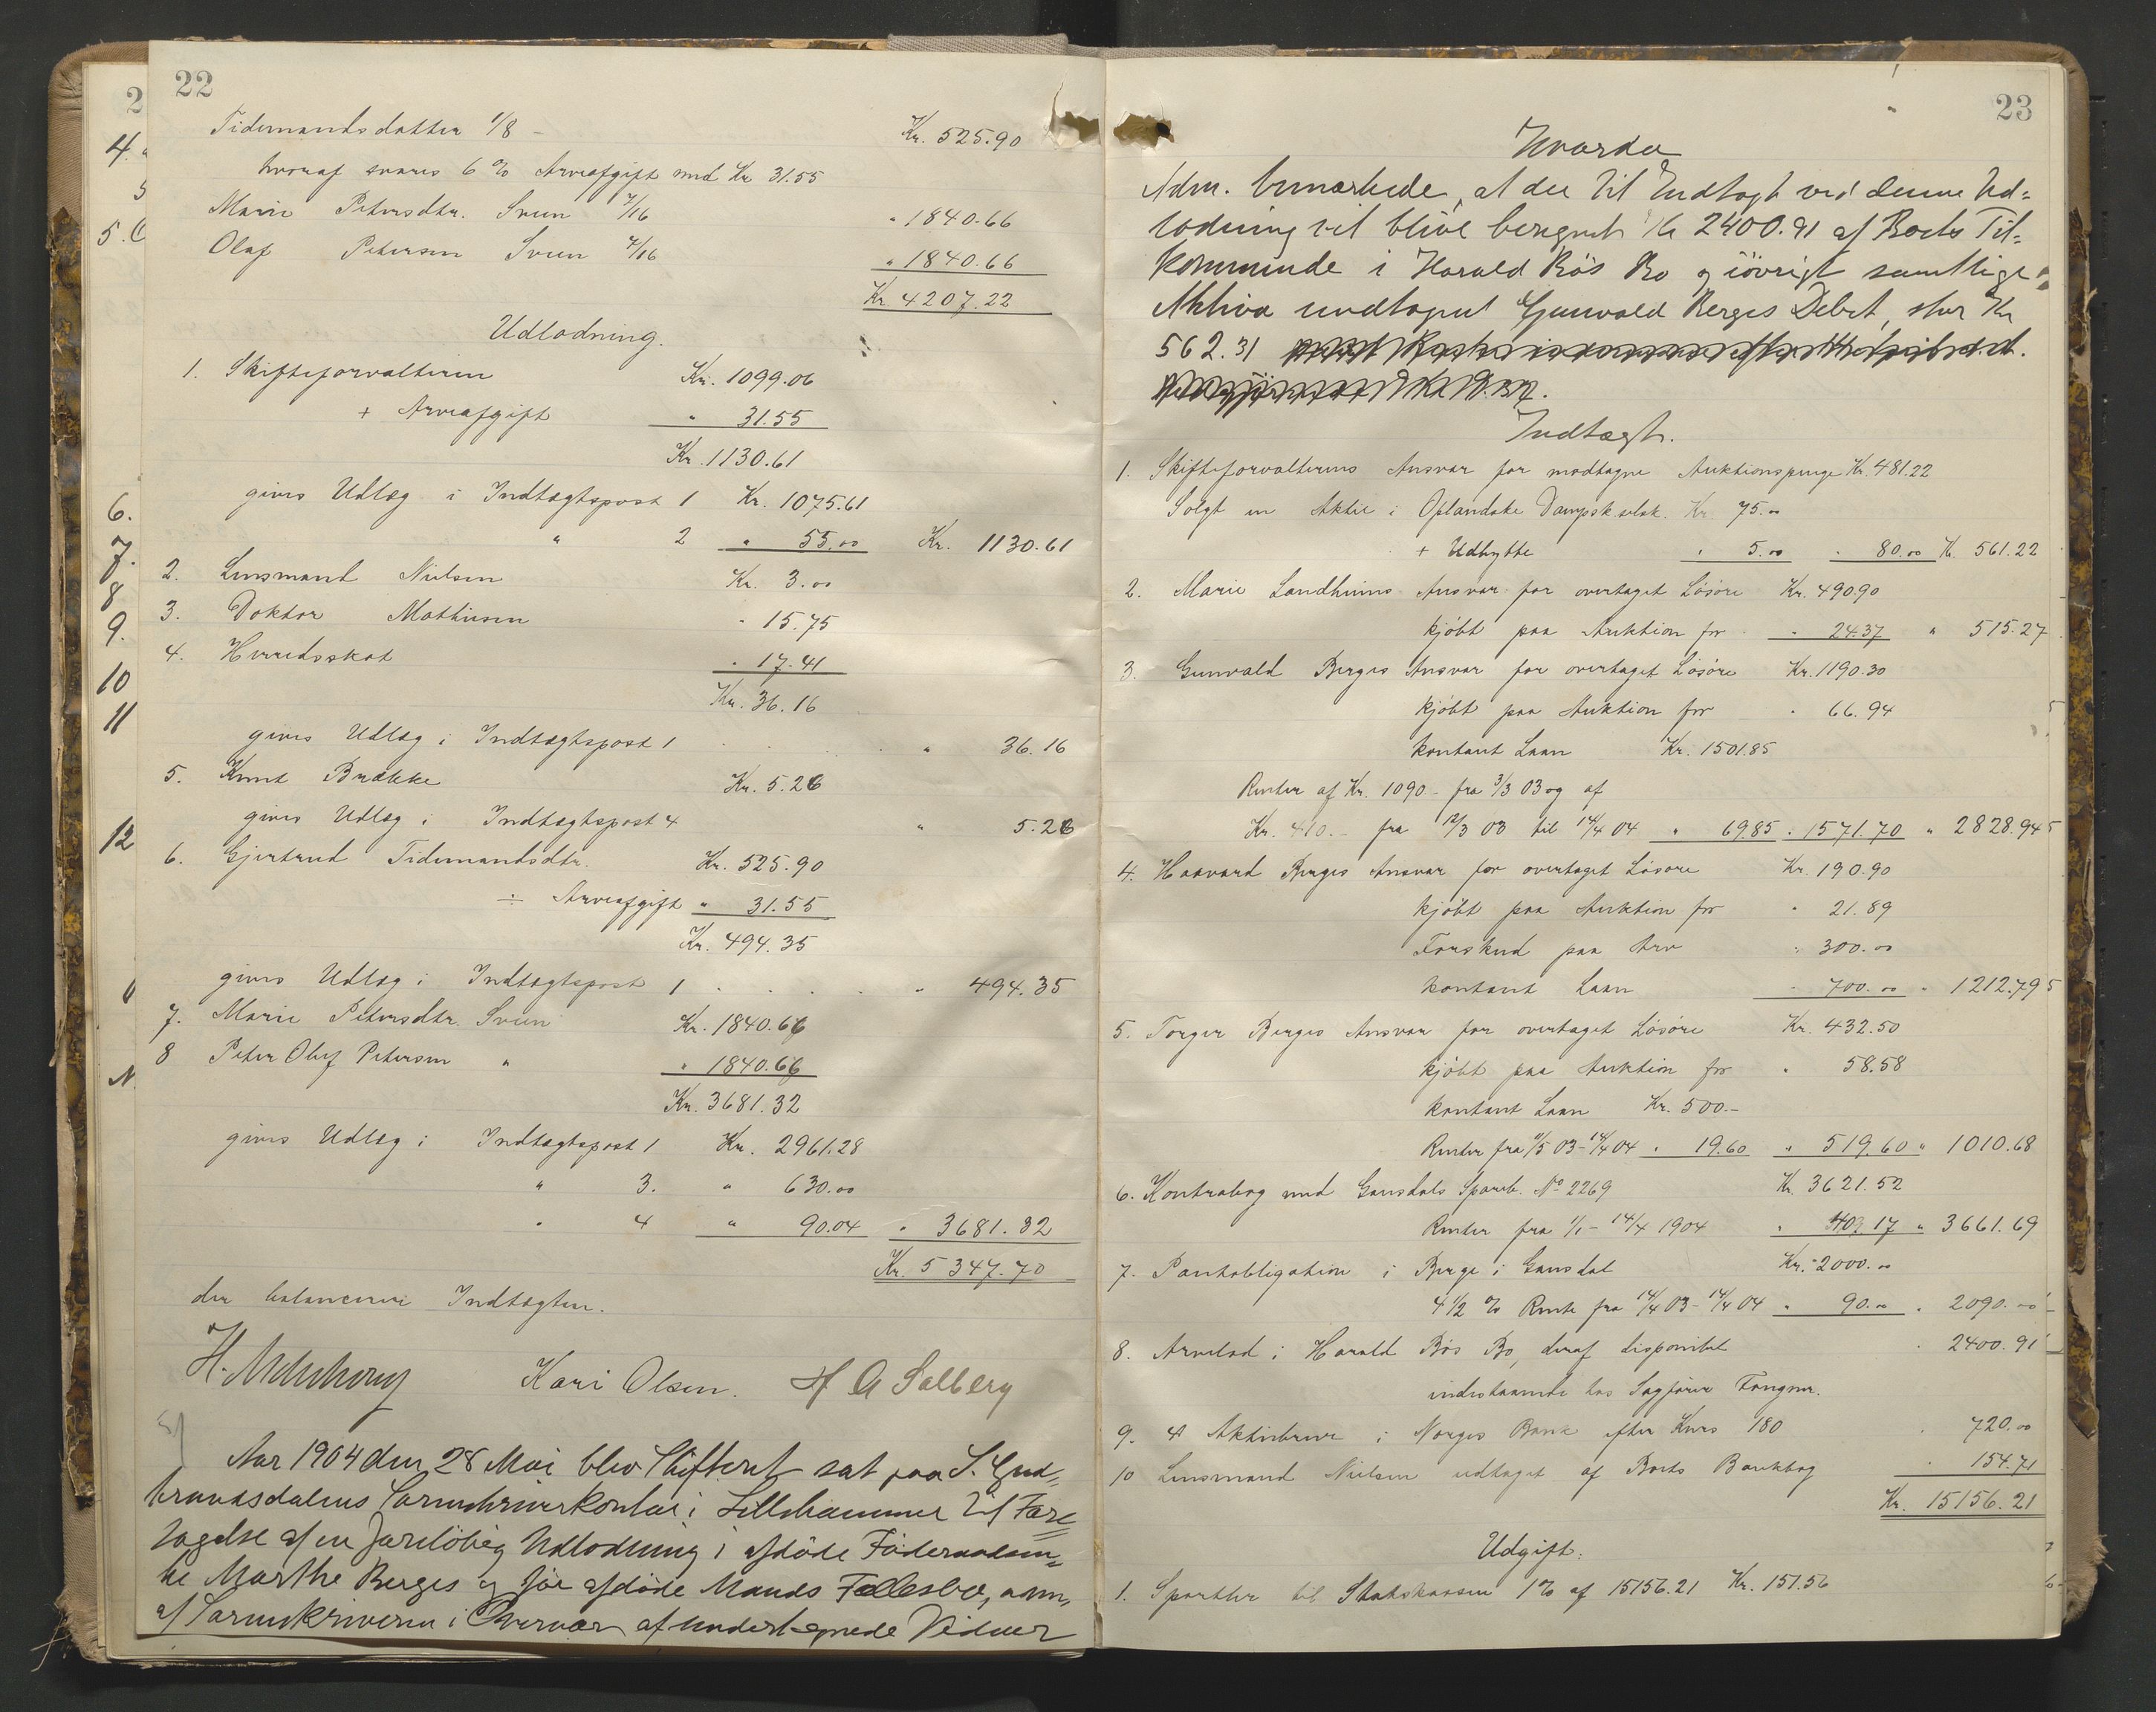 22
Tidemandsdatter 1/8 – Kr. 525.90
hvoraf svares 6 % Arveafgift med Kr 31.55
Marie Petersdtr. Sveen 7/16 " 1840.66
Olaf Petersen Sveen 7/16 " 1840.66
Kr 4207.22
Udlodning.
1. Skifteforvalteren Kr. 1099.06
+ Arveafgift " 31.55
Kr. 1130.61
gives Udlæg i Indtægtspost 1 Kr. 1075.61
" 2 " 55.00 Kr. 1130.61
2. Lensmand Nielsen Kr. 3.00
3. Doktor Mathiesen " 15.75
4. Herredsskat " 17.41
Kr. 36.16
gives Udlæg i Indtægtspost 1 . . . " 36.16
5. Knut Brække Kr. 5.26
gives Udlæg i Indtægtspost 4 " 5.26
6. Gjertrud Tidemandsdtr. Kr. 525.90
÷ Arveafgift " 31.55
Kr. 494.35
gives Udlæg i Indtægtspost 1 . . . . " 494.35
7. Marie Petersdtr. Sveen Kr. 1840.66
8 Peter Oluf Petersen " " 1840.66
Kr. 3681.32
gives Udlæg i Indtægtspost 1 Kr. 2961.28
" 3. " 630.00
" 4 " 90.04 " 3681.32
Kr. 5347.70
der balancerer Indtægten.
Kari Olsen. H A Salberg
Aar 1904 den 28 Mai blev Skifteret sat paa S. Gud=
brandsdalens Sorenskriverkontor i Lillehammer til Fore=
tagelse af en foreløbig Udlodning i afdøde Føderaadsen=
ke Marthe Berges og før afdøde Mands Fællesbo, adm.
af Sorenskriveren i Overvær af undertegnede Vidner
23
Hvorda
Adm. bemærkede, at der til Indtægt ved denne Ud=
lodning vil blive beregnet Kr 2400.91 af Boets Til=
kommende i Harald Bøs Bo og iøvrigt samtlige
Aktiva undtaget Gunvald Berges Debet, stor Kr
562.31
Indtægt.
1. Skifteforvalterens Ansvar for modtagne Auktionspenge Kr. 481.22
Solgt en Aktie i Oplandske Dampsk.selsk. Kr 75.00
+ Udbytte " 5.00 " 80.00 Kr. 561.22
2. Marie Landheims Ansvar for overtaget Løsøre Kr. 490.90
kjøbt paa Auktion for " 24.37 " 515.27
3. Gunvald Berges Ansvar for overtaget Løsøre Kr. 1190.30
kjøbt paa Auktion for " 66.94
kontant Laan Kr. 1501.85
Renter af Kr. 1090 – fra 3/3 03 og af
Kr. 410. – fra 12/3 03 til 14/4 04 " 69.85 " 1571.70 " 2828.94
4. Haavard Berges Ansvar for overtaget Løsøre Kr. 190.90
kjøbt paa Auktion for " 21.89
Forskud paa Arv " 300.00
kontant Laan " 700.00 " 1212.79
5. Torger Berges Ansvar for overtaget Løsøre Kr. 432.50
kjøbt paa Auktion for " 58.58
kontant Laan Kr. 500.–
Renter fra 11/5 03 – 14/4 04 " 19.60 " 519.60 " 1010.68
6. Kontrabog med Gausdals Spareb. No 2269 Kr. 3621.52
Renter fra 1/1 – 14/4 1904 " 40.17 " 3661.69
7. Pantobligation i Berge i Gausdal Kr. 2000.00
4 1/2 % Rente fra 14/4 03 – 14/4 04 " 90.00 " 2090.00
8. Arvelod i Harald Bøs Bo, deraf disponibel " 2400.91
indestaaende hos Sagfører Fougner.
9. 4 Aktiebreve i Norges Bank efter Kurs 180 " 720.00
10 Lensmand Nielsen udtaget af Boets Bankbog " 154.71
Kr. 15156.21
Udgift.
1. Sportler til Statskassen 1 % af 15156.21 Kr. 151.56